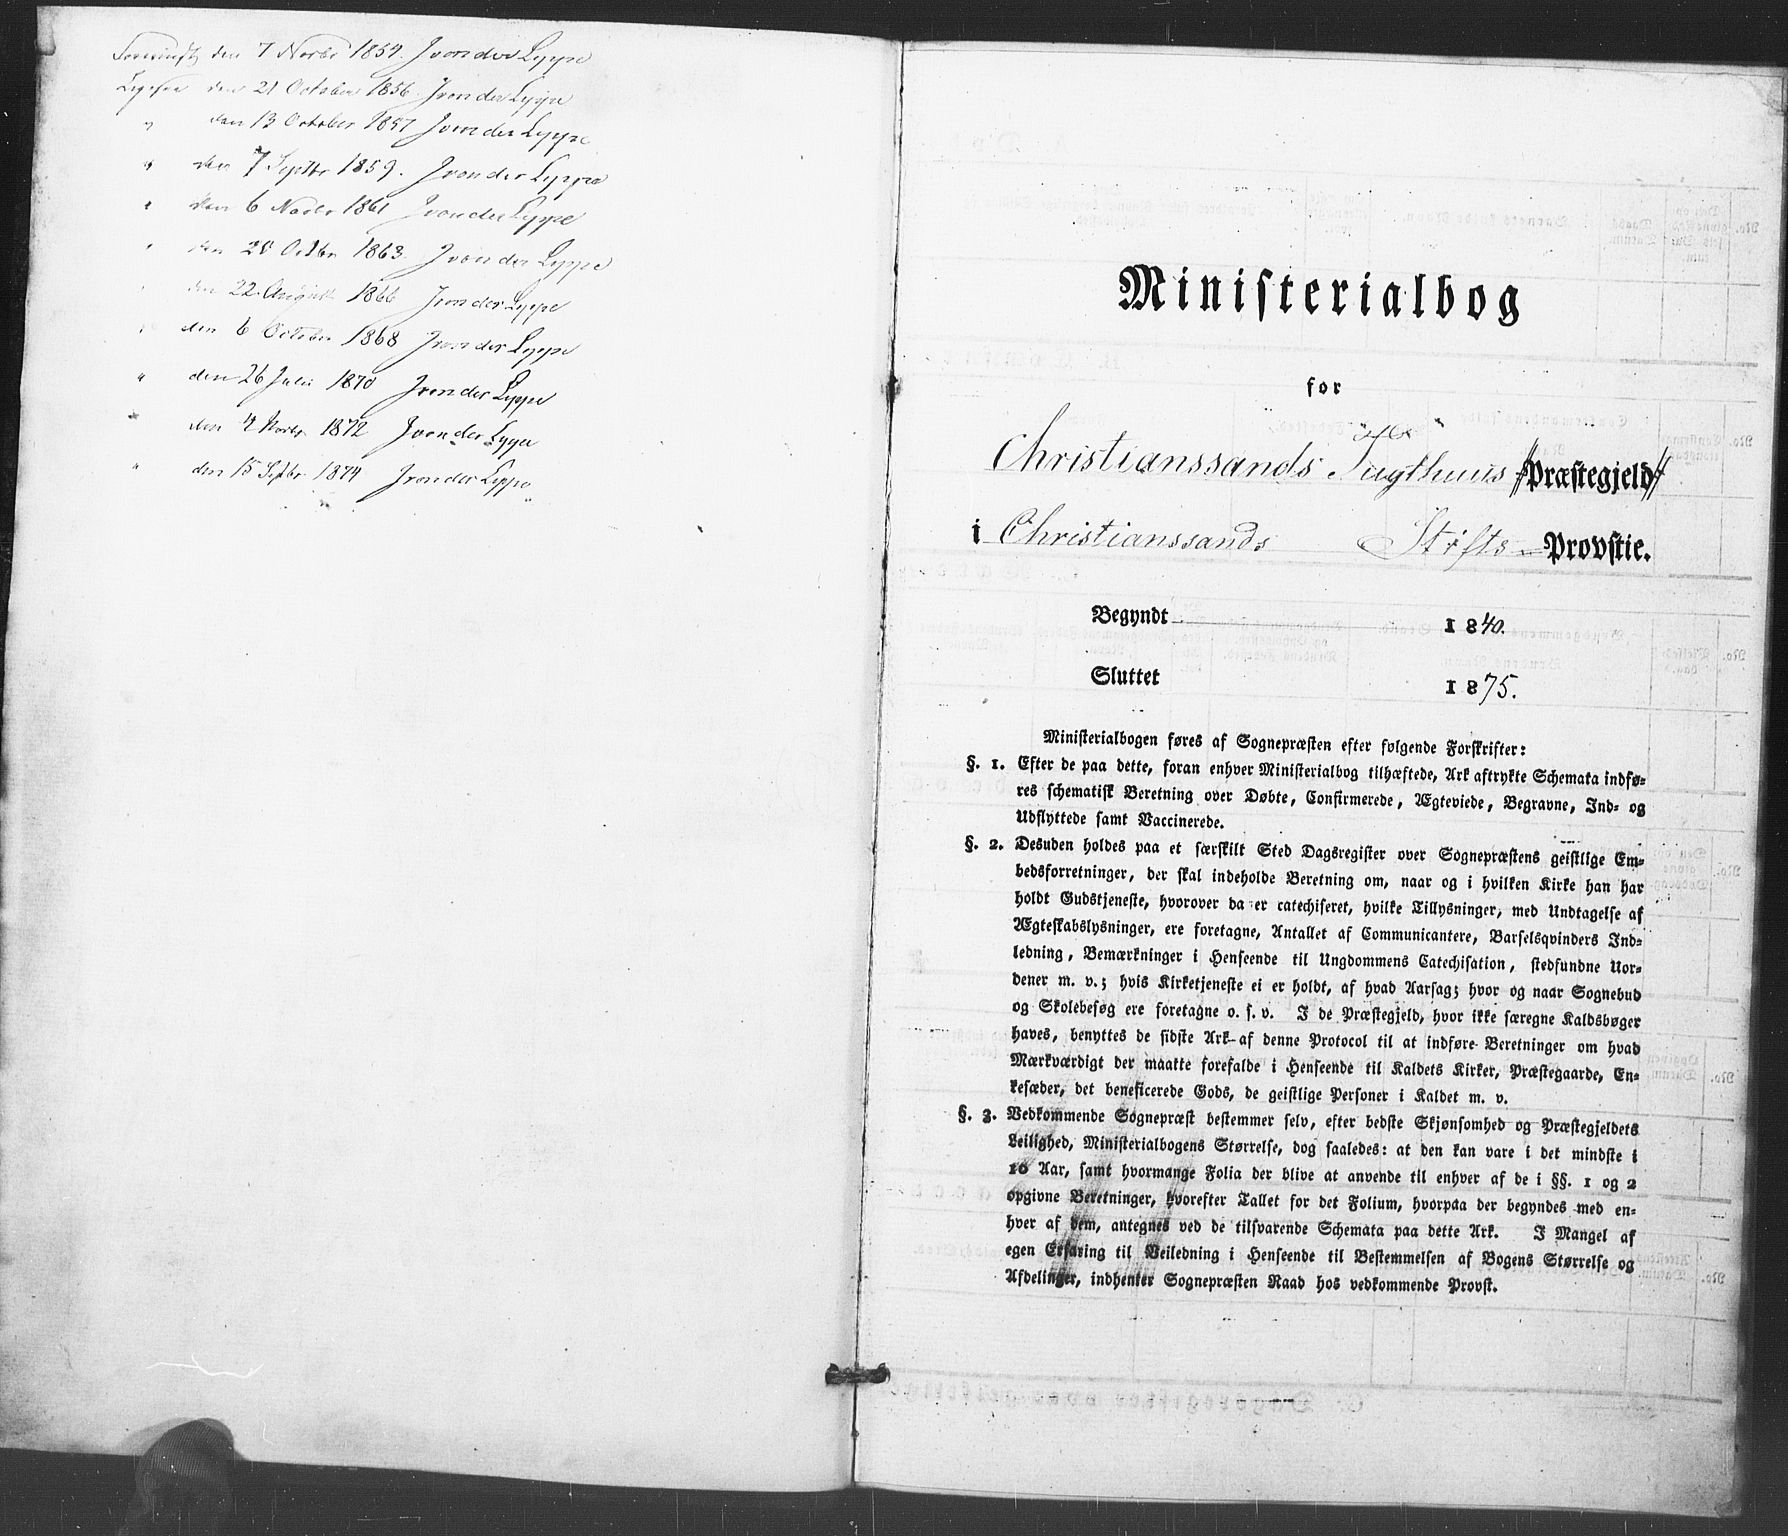 den 7 Novbr 1854. J von der Lyppe
Ligesaa den 21 October 1856. J von der Lyppe
" den 13 October 1857 J von der Lyppe
" den 7 Septbr 1859. J von der Lyppe
" den 6 Novbr 1861 J von der Lyppe
" den 20 Octbr 1863. J von der Lyppe
den 22 August 1866 J von der Lyppe
den 6 October 1868 J von der Lyppe
" den 26 Juli 1870 J von der Lyppe
" den 4 Novbr 1872 J von der Lyppe
" den 15 Septbr 1874 J von der Lyppe
Ministerialbog
for
Christianssands Tugthuus Præstegjeld
i Christianssands Stifts Provstie.
Begyndt 1840.
Sluttet 1875.
Ministerialbogen føres af Sognepræsten efter følgende Forskrifter:
§. 1. Efter de paa dette, foran enhver Ministerialbog tilhæftede, Ark aftrykte Schemata indfø-
res schematisk Beretning over Døbte, Confirmerede, Ægteviede, Begravne, Ind- og
Udflyttede samt Vaccinerede.
§. 2. Desuden holdes paa et særskilt Sted Dagsregister over Sognepræstens geistlige Em-
bedsforretninger, der skal indeholde Beretning om, naar og i hvilken Kirke han har
holdt Gudstjeneste, hvorover da er catechiseret, hvilke Tillysninger, med Undtagelse af
Ægteskabslysninger, ere foretagne, Antallet af Communicantere, Barselqvinders Ind-
ledning, Bemærkninger i Henseende til Ungdommens Catechisation, stedfundne Uor-
dener m. v.; hvis Kirketjeneste ei er holdt, af hvad Aarsag; hvor og naar Sognebud
og Skolebesøg ere foretagne o. s. v. I de Præstegjeld, hvor ikke særegne Kaldsbøger
haves, benyttes de sidste Ark af denne Protocol til at indføre Beretninger om hvad
Mærkværdigt der maatte forefalde i Henseende til Kaldets Kirker, Præstegaarde, En-
kesæder, det beneficerede Gods, de geistlige Personer i Kaldet m. v.
§. 3. Vedkommende Sognepræst bestemmer selv, efter bedste Skjønsomhed og Præstegjeldets
Leilighed, Ministerialbogens Størrelse, dog saaledes: at den kan vare i det mindste i
10 Aar, samt hvormange Folia der blive at anvende til enhver af de i §§. 1 og 2
opgivne Beretninger, hvorefter Tallet for det Folium, hvorpaa der begyndes med en-
hver af dem, antegnes ved de tilsvarende Schemata paa dette Ark. I Mangel af
egen Erfaring til Veiledning i Henseende til Bestemmelsen af Bogens Størrelse og
Afdelinger, indhenter Sognepræsten Raad hos vedkommende Provst.